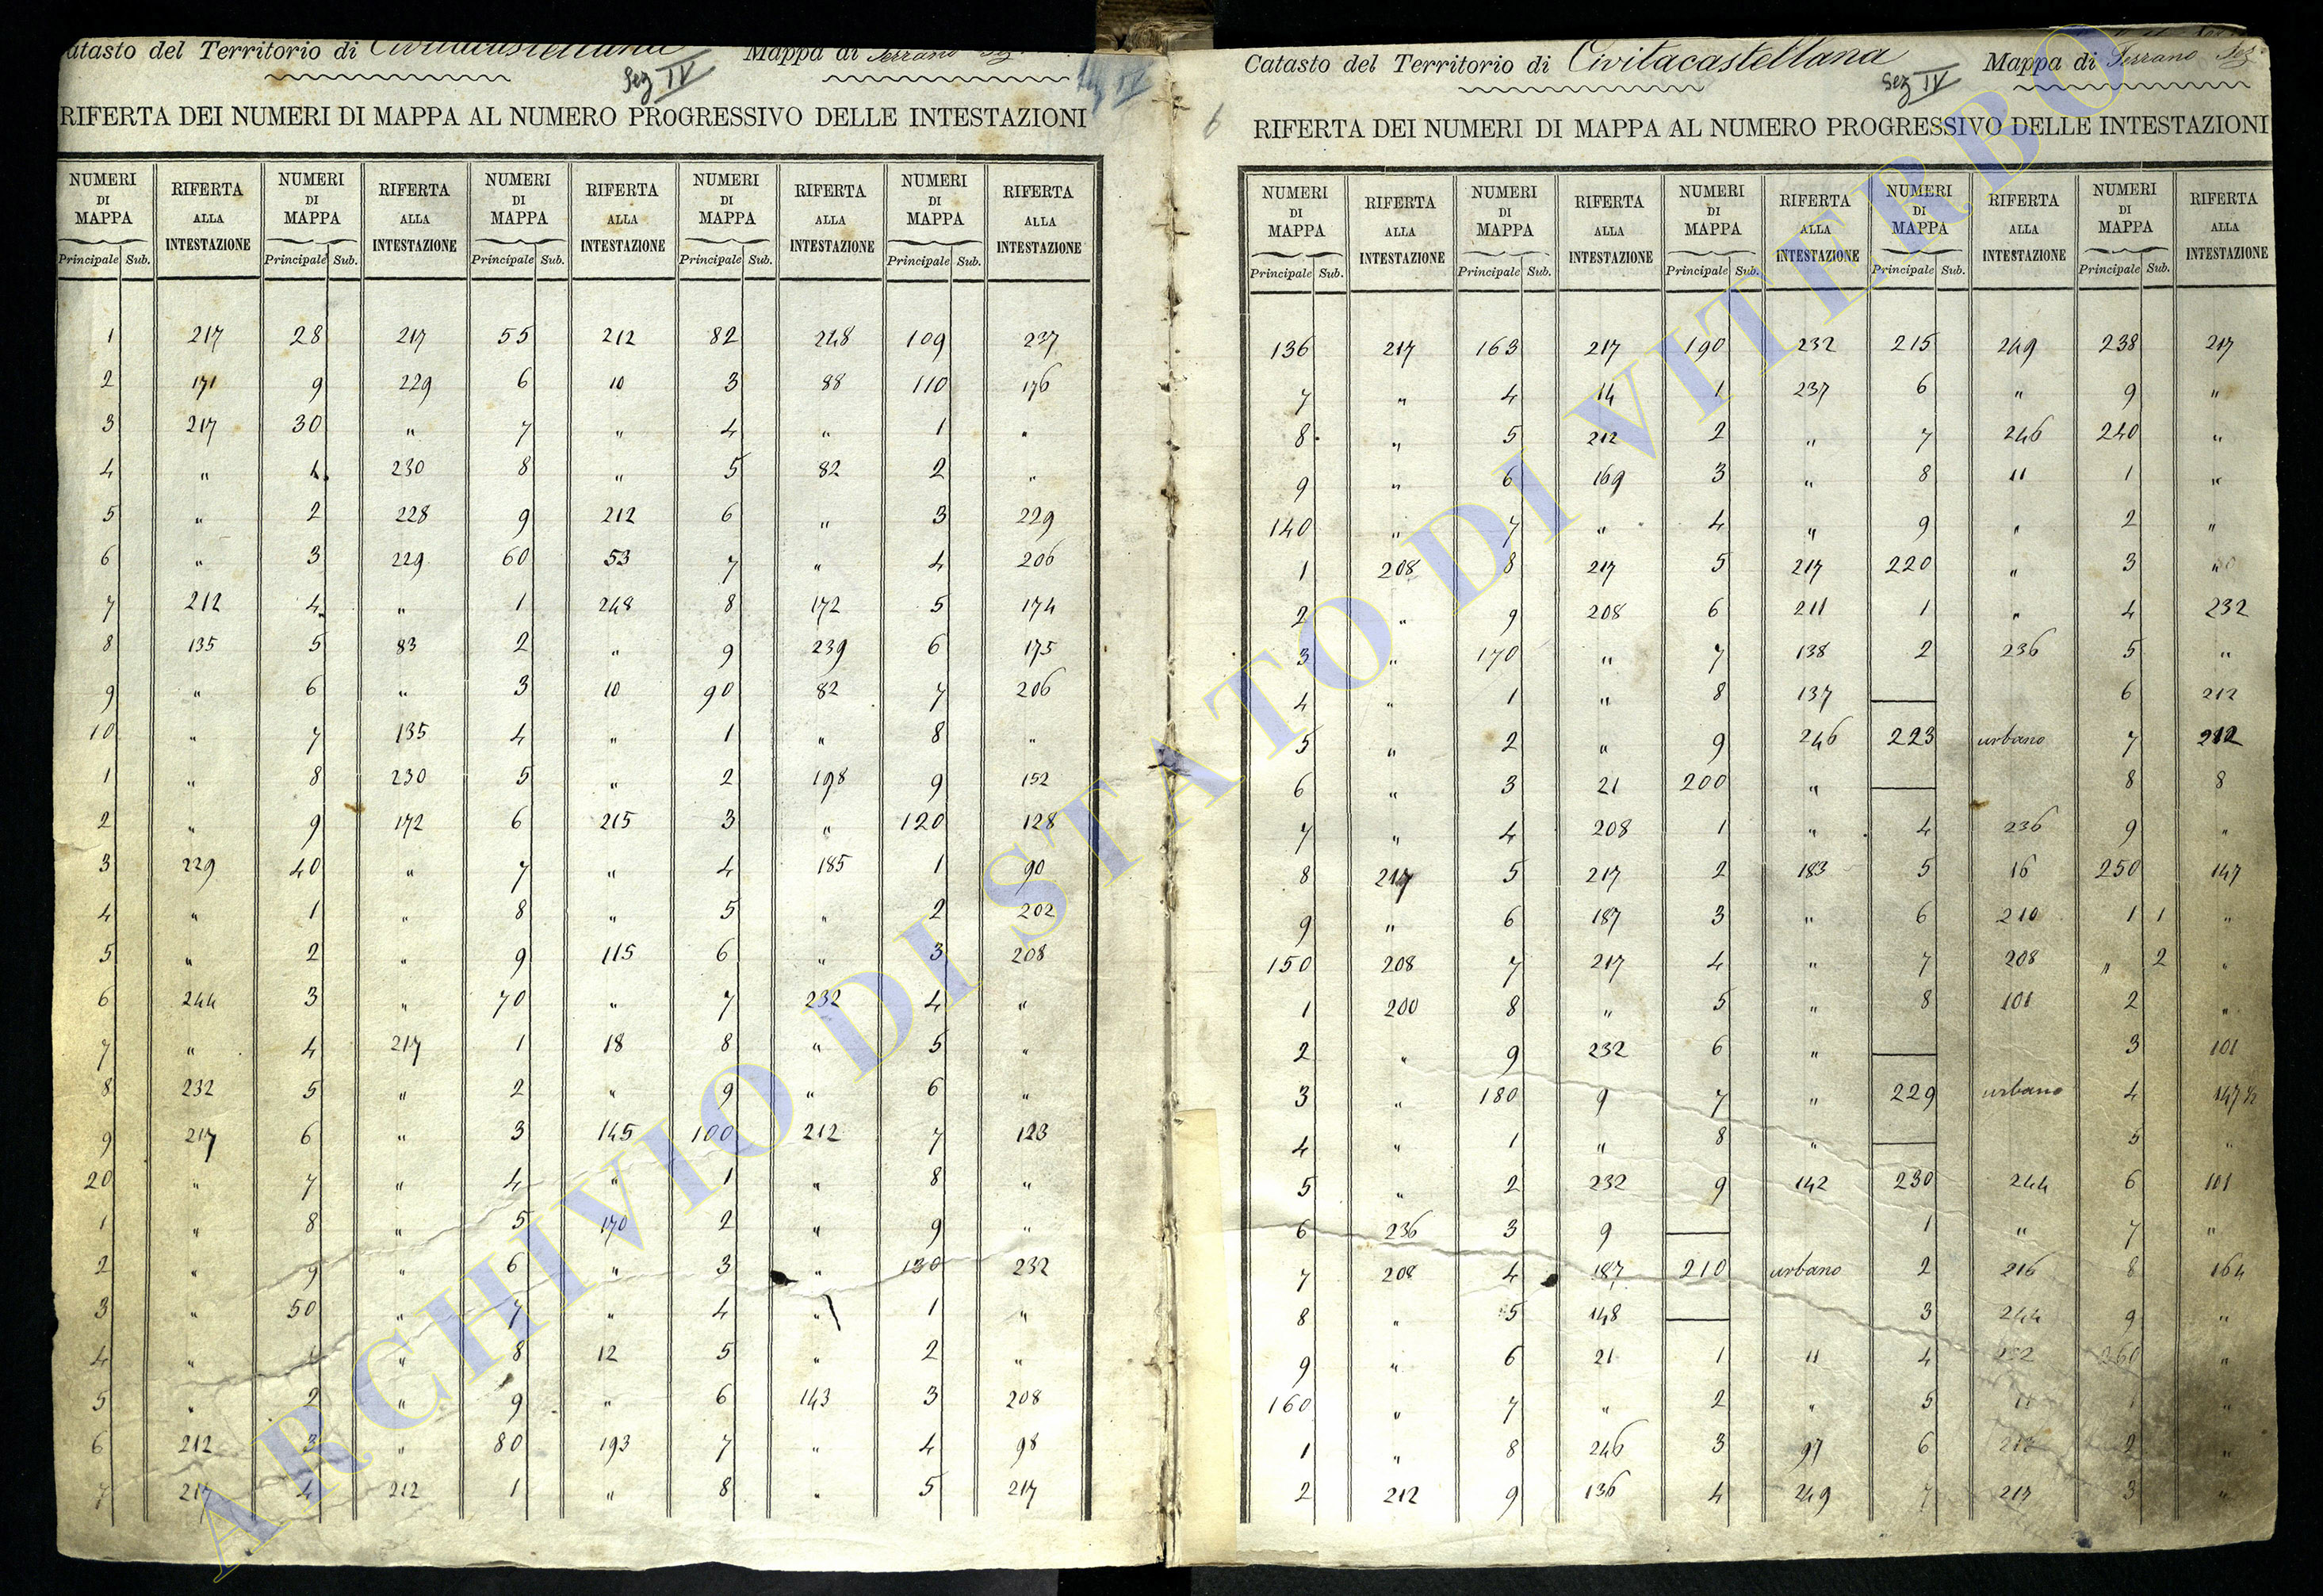 Catasto del Territorio di Civitacastellana Mappa di Terrano Sez
Sez IV
Sez IV
RIFERTA DEI NUMERI DI MAPPA AL NUMERO PROGRESSIVO DELLE INTESTAZIONI
NUMERI DI MAPPA RIFERTA ALLA INTESTAZIONE NUMERI DI MAPPA RIFERTA ALLA INTESTAZIONE NUMERI DI MAPPA RIFERTA ALLA INTESTAZIONE NUMERI DI MAPPA RIFERTA ALLA INTESTAZIONE NUMERI DI MAPPA RIFERTA ALLA INTESTAZIONE
Principale Sub. Principale Sub. Principale Sub. Principale Sub. Principale Sub.
1 217 28 217 55 212 82 248 109 237
2 171 9 229 6 10 3 88 110 176
3 217 30 " 7 " 4 " 1 "
4 " 1 230 8 " 5 82 2 "
5 " 2 228 9 212 6 " 3 229
6 " 3 229 60 53 7 " 4 206
7 212 4 " 1 248 8 172 5 174
8 135 5 83 2 " 9 239 6 175
9 " 6 " 3 10 90 82 7 206
10 " 7 135 4 " 1 " 8 "
1 " 8 230 5 " 2 198 9 152
2 " 9 172 6 215 3 " 120 128
3 229 40 " 7 " 4 185 1 90
4 " 1 " 8 " 5 " 2 202
5 " 2 " 9 115 6 " 3 208
6 244 3 " 70 " 7 232 4 "
7 " 4 217 1 18 8 " 5 "
8 232 5 " 2 " 9 " 6 "
9 217 6 " 3 145 100 212 7 123
20 " 7 " 4 " 1 " 8 "
1 " 8 " 5 170 2 " 9 "
2 " 9 " 6 " 3 " 130 232
3 " 50 " 7 " 4 " 1 "
4 " 1 " 8 12 5 " 2 "
5 " 2 " 9 " 6 143 3 208
6 212 3 " 80 193 7 " 4 98
7 217 4 212 1 " 8 " 5 217
Catasto del Territorio di Civitacastellana Mappa di Terrano Sez
Sez IV
6
RIFERTA DEI NUMERI DI MAPPA AL NUMERO PROGRESSIVO DELLE INTESTAZIONI
NUMERI DI MAPPA RIFERTA ALLA INTESTAZIONE NUMERI DI MAPPA RIFERTA ALLA INTESTAZIONE NUMERI DI MAPPA RIFERTA ALLA INTESTAZIONE NUMERI DI MAPPA RIFERTA ALLA INTESTAZIONE NUMERI DI MAPPA RIFERTA ALLA INTESTAZIONE
Principale Sub. Principale Sub. Principale Sub. Principale Sub. Principale Sub.
136 217 163 217 190 232 215 249 238 217
7 " 4 14 1 237 6 " 9 "
8 " 5 212 2 " 7 246 240 "
9 " 6 169 3 " 8 11 1 "
140 " 7 " 4 " 9 " 2 "
1 208 8 217 5 217 220 " 3 "
2 " 9 208 6 211 1 " 4 232
3 " 170 " 7 138 2 236 5 "
4 " 1 " 8 137 6 212
5 " 2 " 9 246 223 urbano 7 212
6 " 3 21 200 " 8 8
7 " 4 208 1 " 4 236 9 "
8 217 5 217 2 183 5 16 250 147
9 " 6 187 3 " 6 210 1 1 "
150 208 7 217 4 " 7 208 " 2 "
1 200 8 " 5 " 8 101 2 "
2 " 9 232 6 " 3 101
3 " 180 9 7 " 229 urbano 4 147 1/2
4 " 1 " 8 " 5 "
5 " 2 232 9 142 230 244 6 101
6 236 3 9 1 " 7 "
7 208 4 187 210 urbano 2 216 8 164
8 " 5 148 3 244 9 "
9 " 6 21 1 11 4 232 260 "
160 " 7 " 2 " 5 11 1 "
1 " 8 246 3 97 6 212 2 "
2 212 9 136 4 249 7 217 3 "
ARCHIVIO DI STATO DI VITERBO